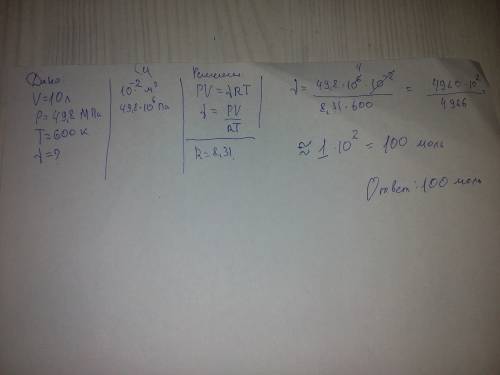 Дано
V=10л
P=49,8 МПа
T=600 к
γ=?
Си
10⁻² м³
49,8·10⁶ Па
Решение
PV=γRT
γ= PV
RT
R=8,31.
γ= 49,8·10⁶·10⁻² / 8,31·600 = 4980·10² / 4986
4
≈ 1·10² = 100 моль
Ответ: 100 моль